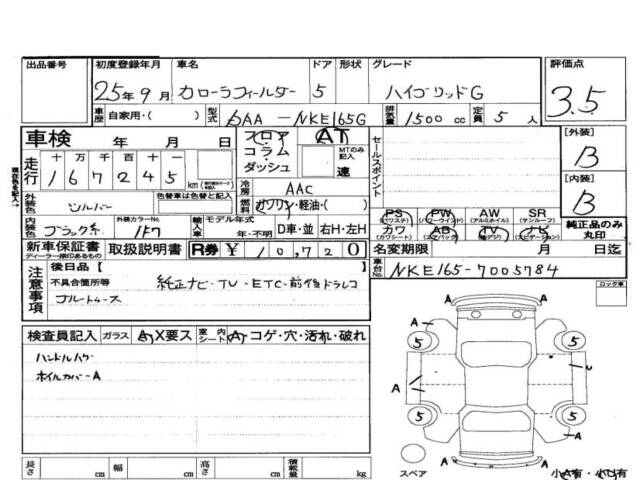 出品番号 初度登録年月 車名 ドア 形状 グレード 評価点
25年9月 カローラフィールダー 5 ハイブリッドG 3.5
車歴 自家用・( ) 型式 DAA-NKE165G 排気量 1500cc 定員 5人
車検 年 月 日 フロア AT セールスポイント [外装]
走行 十万千百十 コラム MTのみ記入 B
167245 km ダッシュ 速
冷房 AAC [内装]
外装色 シルバー 色替車は色替と記入 燃料 ガソリン・軽油・( ) B
PS PW AW SR
(パワステ) (パワーウインド) (アルミホイル) (サンルーフ)
内装色 ブラック系 外装カラーNo. 1F7 輸入車 モデル年式 年・不明 D車・並 右H・左H カワ AB TV ナビ 純正品のみ
(カワシート) (エアバック) (純正) (ナビゲーション) 丸印
新車保証書 取扱説明書 R券 ¥ 10,720 名変期限 月 日迄
ディーラー捺印あるもの
注意事項 後日品 [ ] 車台No. NKE165-7005784
不具合箇所等 純正ナビ・TV・ETC・前後ドラレコ
ブルートゥース
ロック車
検査員記入 ガラス A X要ス 室内シート A・コゲ・穴・汚れ・破れ
ハンドルハゲ
ホイルカバーA
A A
5 5
A A
5 5
A A
スペア 小A有・小U有
長さ cm 幅 cm 高さ cm 積載量 kg